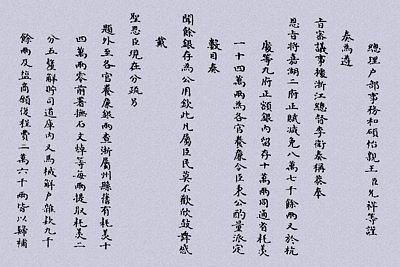 總理户部事務和碩怡親王臣允祥等謹
奏為遵
旨審議事據浙江總督李衛奏稱奉
恩旨將嘉湖二府正賦減免八萬七千餘兩又於杭
處等九府正額銀内留存十萬兩同通省耗羨
一十四萬兩為各官養廉令臣秉公酌量派定
數目奏
聞餘銀存為公用欽此凡屬臣民莫不歡欣鼓舞感
戴
聖恩臣現在分疏另
題外至各官養廉銀兩查浙屬州縣舊有耗羨十
四萬兩零前署撫石文焯等每兩提取耗羨二
分五釐解貯司道庫内又馬械解户雜款九千
餘兩及盐商願復程費二萬六千兩皆以歸補